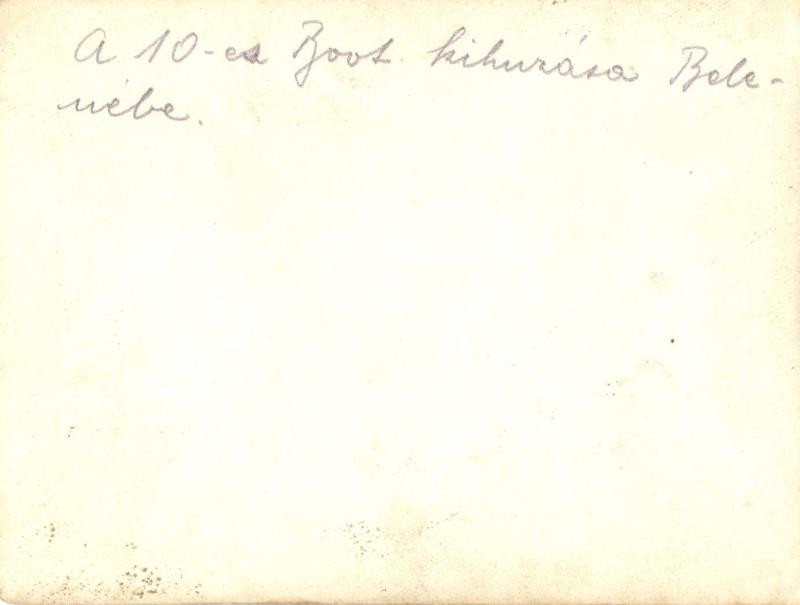 A 10-es Boot kihuzása Bele-
nébe.